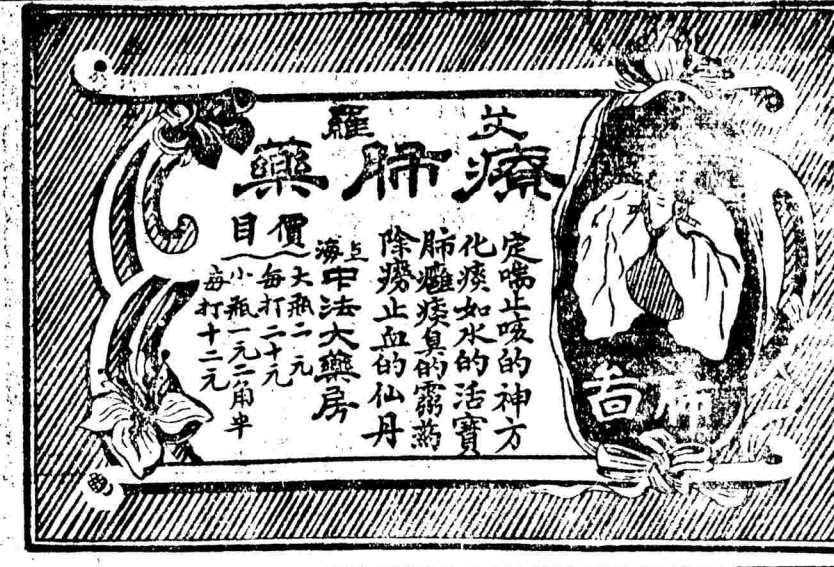 艾羅
療肺藥
定喘止咳的神方
化痰如水的活寶
肺癰痰臭的靈药
除癆止血的仙丹
上海中法大藥房
價目
大瓶二元
每打二十元
小瓶一元二角半
每打十二元
肺